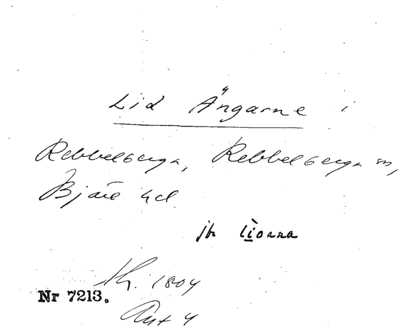 Lid Ängarne i
Rebbelberga, Rebbelberga sn,
Bjäre hd.
jfr
th. 1804
Nr 7213.
Akt 4